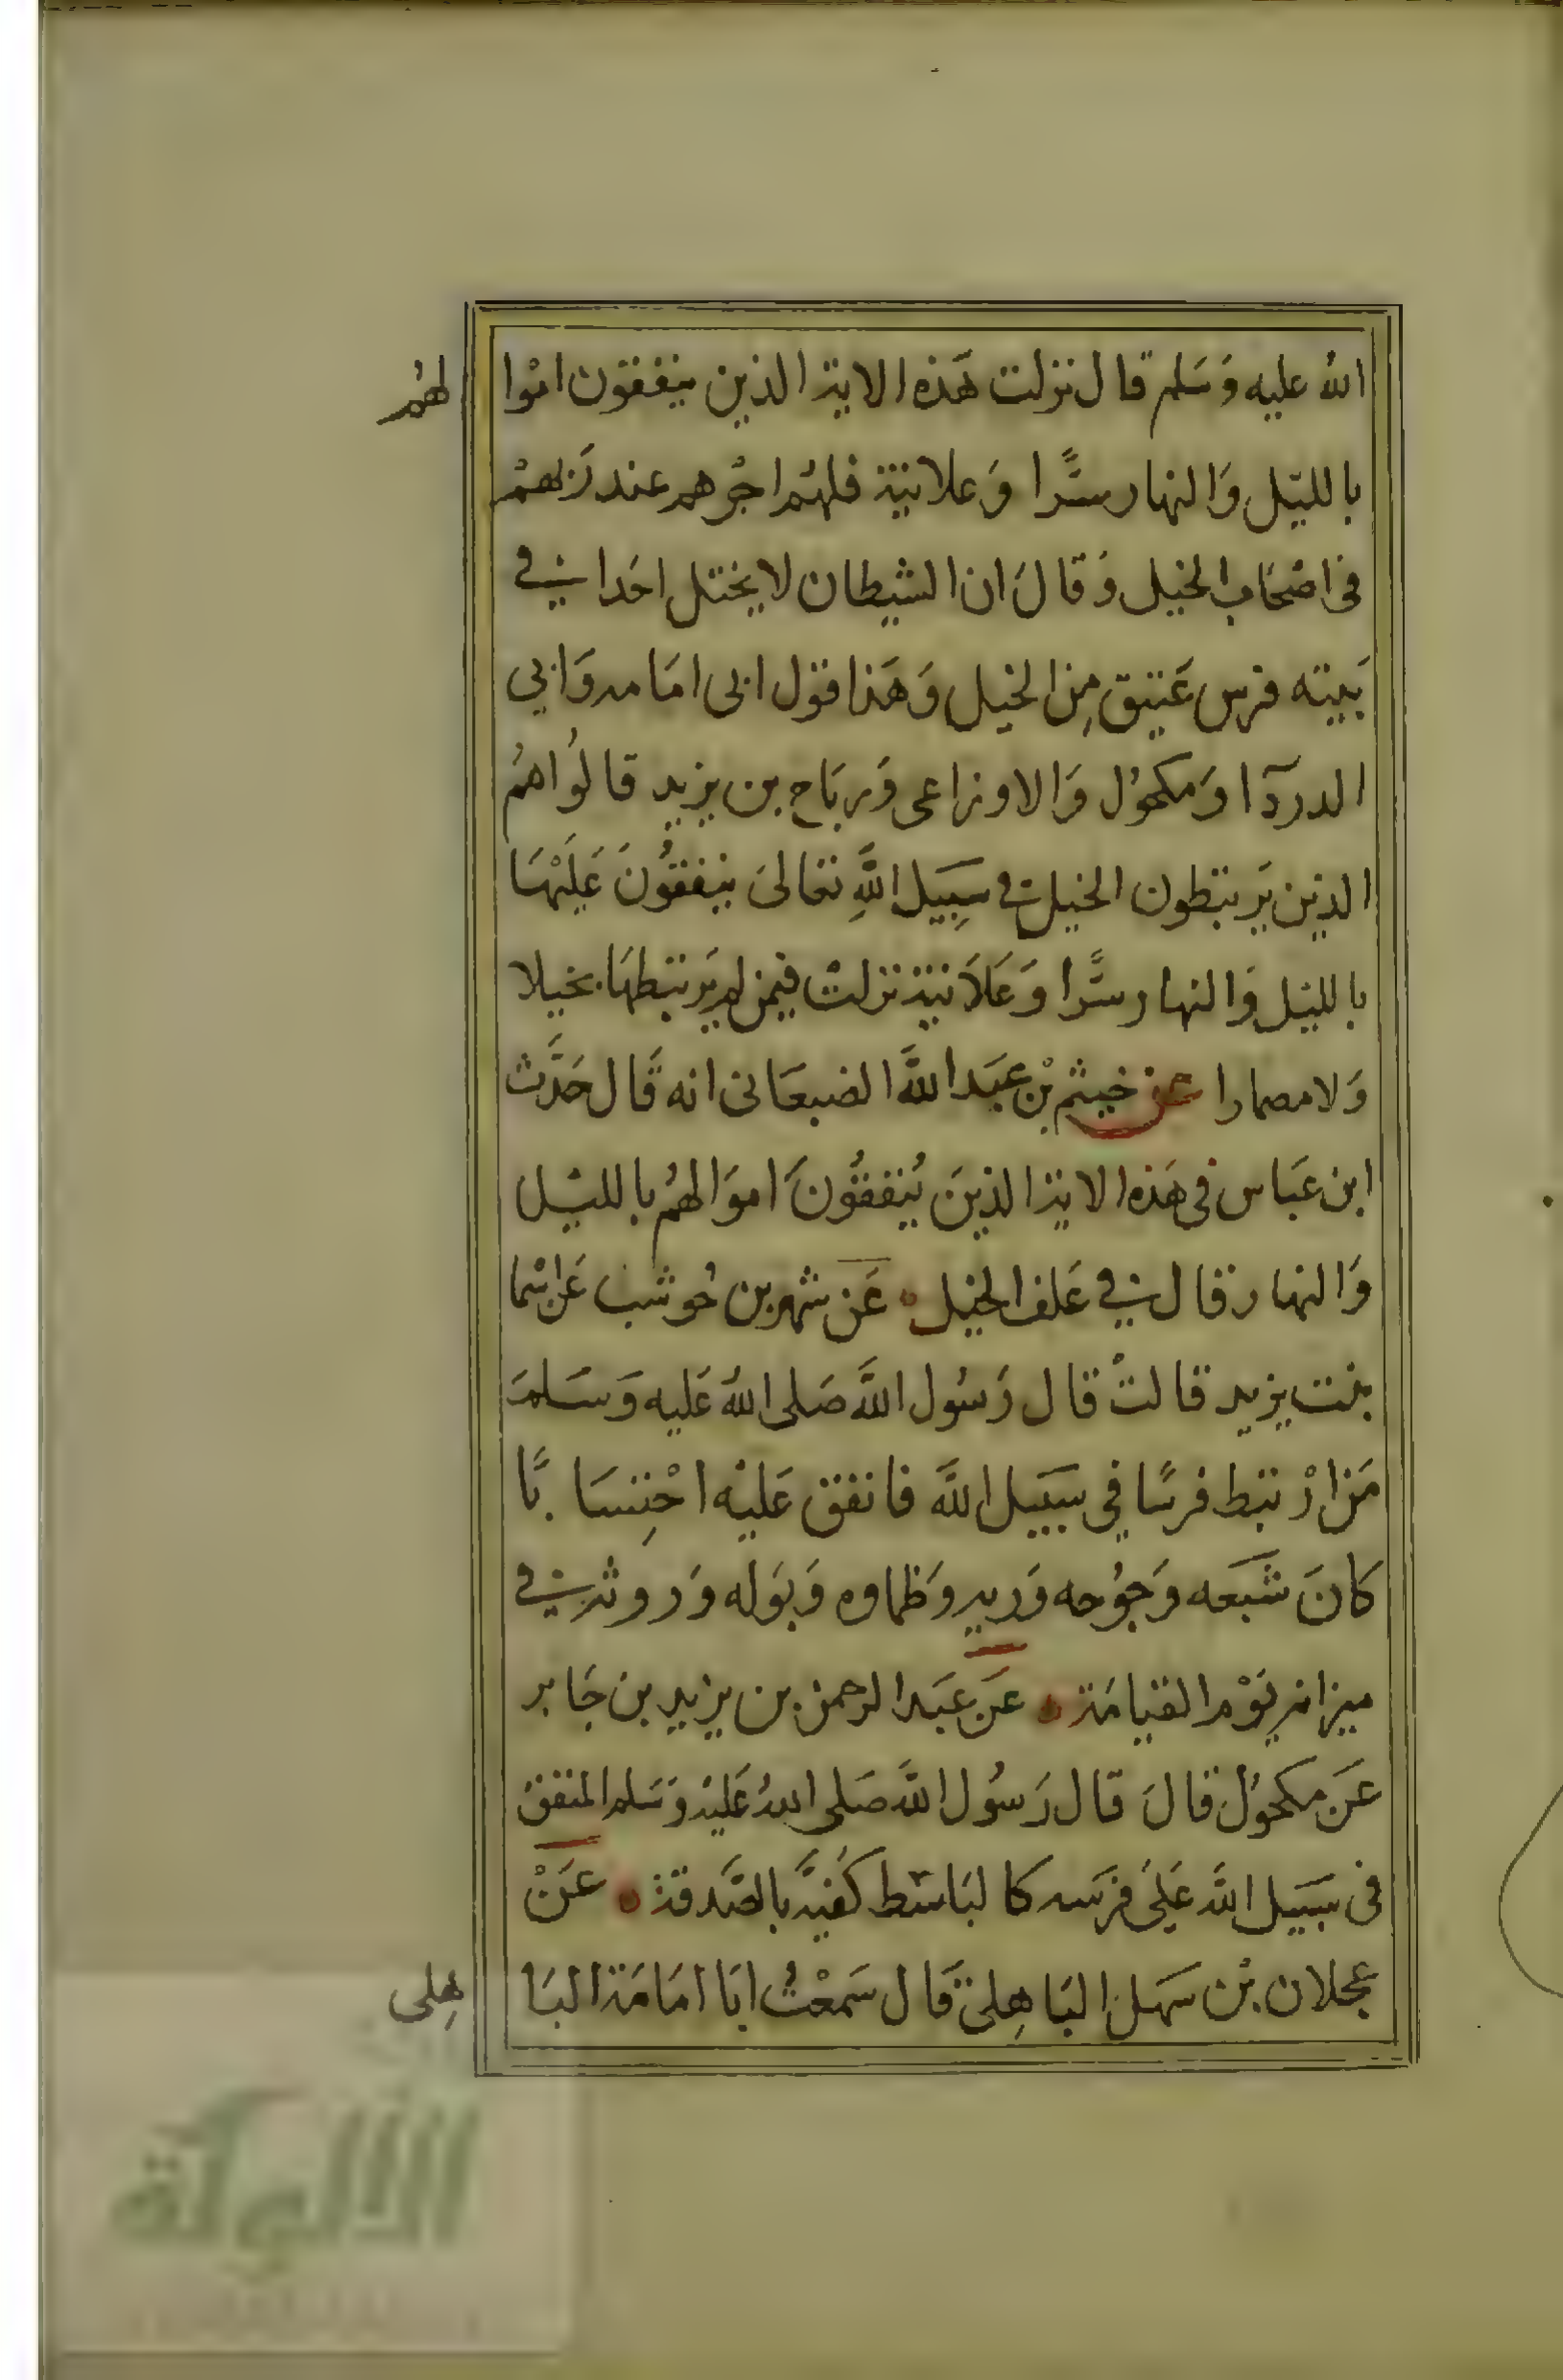 الله عليه وَسَلم قال نزلت هَذه الاية الذين ينفقون امْوا لهُم
بالليْل وَالنهار سرًّا وَعلانية فلهُم اجْرهم عند رَبهمْ
فى اصْحَاب الخيل وَقالَ ان الشيطان لا يختل احَدا فى
بَيته فرس عَتيق مِن الخيل وَهَذا قول ابى امَامه وَابي
الدردآ ا وَمكحوُل وَالاوزاعى وَرباح بن يزيد قالوُا هم
الذين يَرتبطون الخيل فى سَبِيَل اللَّهِ تعَالىَ ينفقُونَ عَليْهَا
بالليْل وَالنهار سرًّا وَعَلاَنية نزلتْ فيمن لم يَرتبطهَا بخيلا
وَلا مصمارا عن خيثم بْن عبَد اللَّه الضبعَانى انه قَال حَدَّث
ابن عَباس فى هَذه الاية الذينَ يُنفقُونَ اموَالهُم بالليْل
وَالنهار قال فى عَلف الخيل عَن شهر بن حُوشب عَن اسْما
بنت يزيد قالتْ قال رَسُول اللَّه صَلى اللهُ عَليه وَسَلمَ
مَن ارْتبط فرسًا في سبَيل اللَّه فانفق عَليْه احْتِسَابًا
كانَ شبَعَه وَجوُعه وَريه وَظماوه وَبَوله وَروثه فى
ميزانه يَوْم القيامَة عَن عبَد الرحمن بن يزيد بن جَابر
عَن مكحوُل قالَ قال رَسُول اللَّه صَلى اللهُ عَليْه وَسَلم المنفق
فى سبَيل اللَّه عَلىَ فرَسه كالبَاسَط كَفيَّه بالصَّدقة عَنْ
عجلان بْن سهَل البَاهِلى قَال سَمعْتُ ابَا امَامَة البَا هِلى
الألوكة